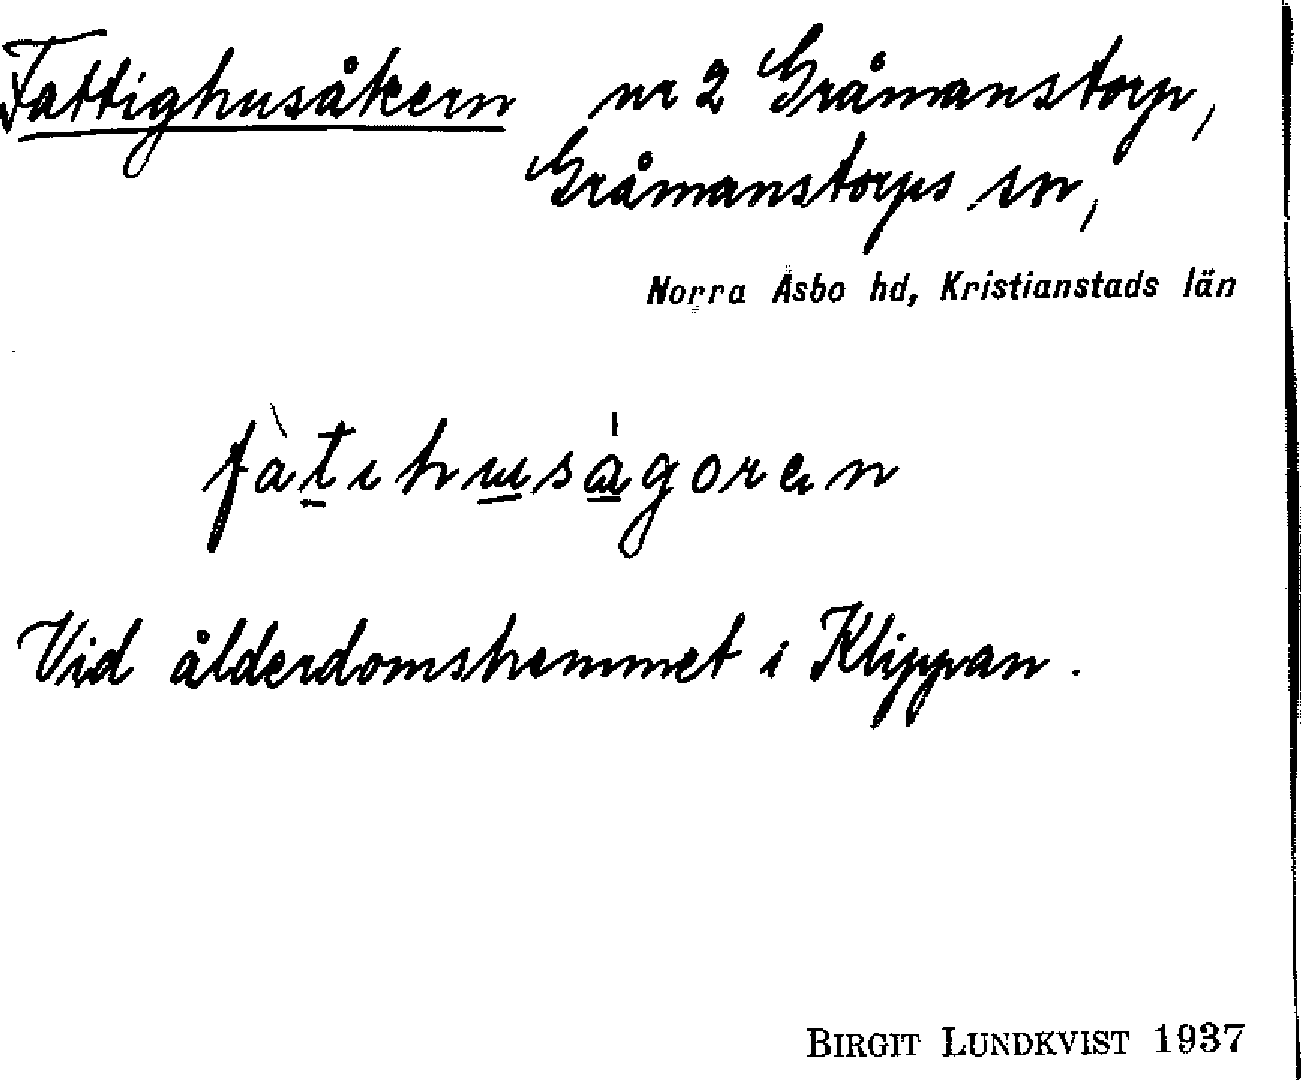 Fattighusåkern nr 2 Gråmanstorp,
Gråmanstorps sn,
Norra Åsbo hd, Kristianstads län
fàt̲ıhu̲sa̲̍goren
Vid ålderdomshemmet i Klippan.
BIRGIT LUNDKVIST 1937